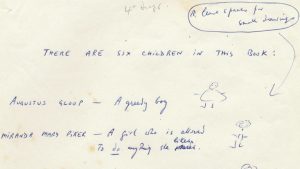 A leave spaces for
small drawings
THERE ARE SIX CHILDREN IN THIS BOOK:
AUGUSTUS GLOOP — A greedy boy
MIRANDA MARY PIKER — A girl who is allowed
To do anything she likes